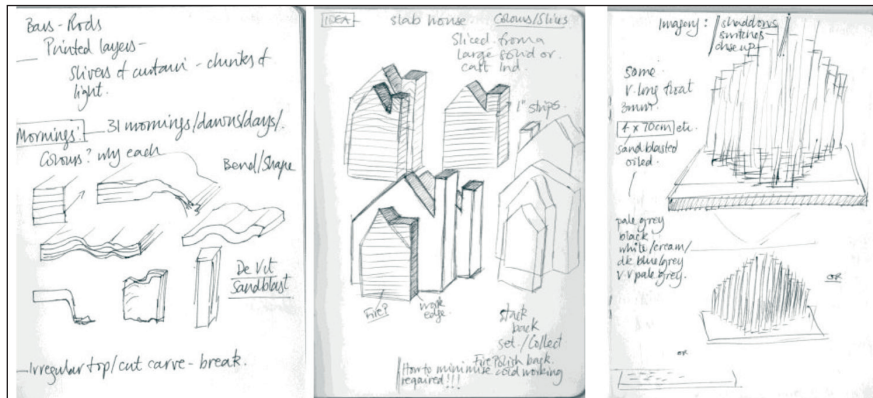 Bars - Rods
Printed layers -
Slivers of curtain - chunks of
light.
Mornings! 31 mornings/dawns/days/.
Colours? why each
Bend/Shape
De Vit
Sandblast
Irregular top/cut carve - break.
IDEA slab house Colours/Slices
Sliced from a
large solid or
cast ind.
1" strips.
Fire?
work
edge.
stack
back
set/Collect
Fire Polish back.
How to minimise cold working
required!!!
Imagery: shaddows
switches
close up
some
v-long float
3mm
4 x 70cm etc.
sandblasted
oiled.
pale grey
black
white/cream/
dk blue/grey
v-v pale grey.
OR
OR